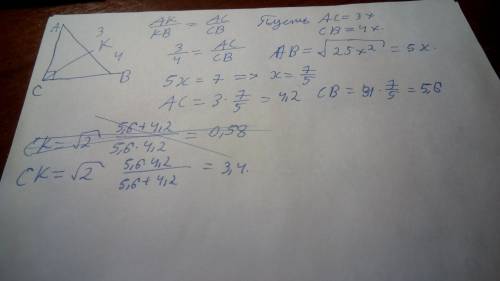 A 3 K 4 C B
AK/KB = AC/CB
3/4 = AC/CB
Пусть AC = 3x
CB = 4x.
AB = √25x² = 5x.
5x = 7 => x = 7/5
AC = 3 · 7/5 = 4,2 CB = 4 · 7/5 = 5,6
CK = √2 (5,6+4,2)/(5,6·4,2) = 0,58
CK = √2 (5,6·4,2)/(5,6+4,2) = 3,4.